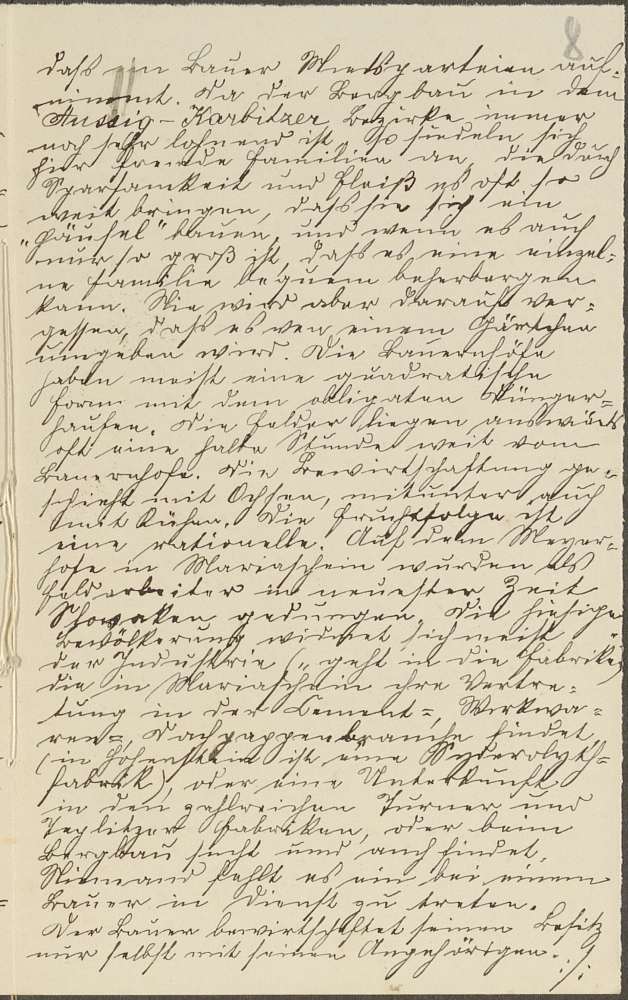 8
daß ein Bauer Mietsparteien auf-
nimmt. Da der Bergbau in dem
Aussig-Karbitzer Bezirke immer
noch sehr lohnend ist, so siedeln sich
hier fremde Familien an, die durch
Sparsamkeit und Fleiß es oft so
weit bringen, daß sie sich ein
"Häusel" bauen, und wenn es auch
nur so groß ist, daß es eine einzel-
ne Familie bequem beherbergen
kann. Nie wird aber darauf ver-
gessen, daß es von einem Gärtchen
umgeben wird. Die Bauernhöfe
haben meist eine quadratische
Form mit dem obligaten Dünger-
haufen. Die Felder liegen auswärts
oft eine halbe Stunde weit vom
Bauernhofe. Die Bewirtschaftung ge-
schieht mit Ochsen, mitunter auch
mit Kühen. Die Fruchtfolge ist
eine rationelle. Auf dem Meyer-
hofe in Mariaschein wurden als
Feldarbeiter in neuester Zeit
Slovaken gedungen. Die hiesige
Bevölkerung widmet sich meist
der Industrie ("geht in die Fabrike"),
die in Mariaschein ihre Vertre-
tung in der Cement-, Wirkwa-
ren-, Dachpappenbranche findet,
(in Hohenstein ist eine Syderolyth-
fabrik), oder eine Unterkunft
in den zahlreichen Turner und
Teplitzer Fabriken, oder beim
Bergbau sucht und auch findet.
Niemand fehlt es ein bei einem
Bauer in Dienst zu treten.
Der Bauer bewirtschaftet seinen Besitz
nur selbst mit seinen Angehörigen. ./.